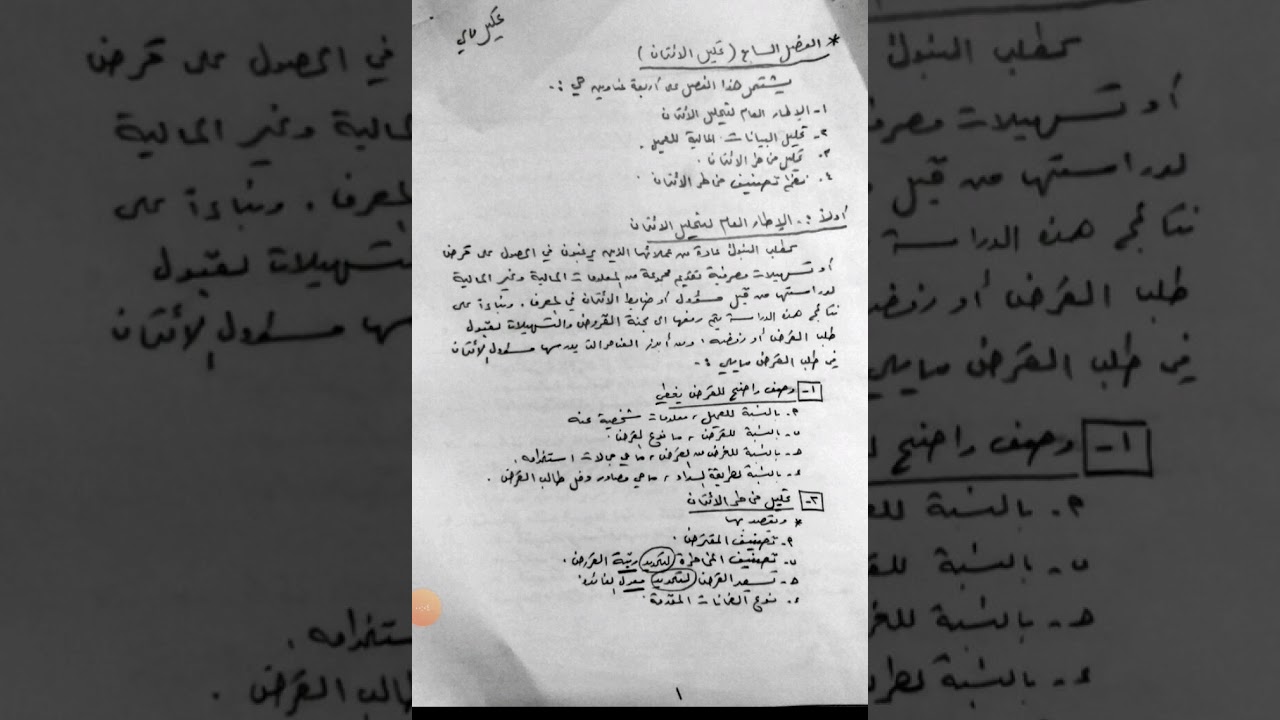 تحليل مالي
* الفصل السابع (تحليل الائتمان)
يشتمل هذا الفصل على أربعة عناوين هي :-
١- الإطار العام لتحليل الائتمان
٢- تحليل البيانات المالية للعميل.
٣. تحليل مخاطر الائتمان.
٤. نظم تصنيف مخاطر الائتمان.
أولاً :- الإطار العام لتحليل الائتمان
تطلب البنوك عادة من عملائها الذين يرغبون في الحصول على قرض
أو تسهيلات مصرفية تقديم مجموعة من المعلومات المالية وغير المالية
لدراستها من قبل مسؤول أو ضابط الائتمان في المصرف. وبناءاً على
نتائج هذه الدراسة يتم رفعها الى لجنة القروض والتسهيلات لقبول
طلب القرض أو رفضه، ومن أبرز العناصر التي يدرسها مسؤول الائتمان
في طلب القرض مايلي :-
١- وصف واضح للقرض يغطي
٢. بالنسبة للعميل، معلومات شخصية عنه
ب- بالنسبة للقرض، ما نوع القرض.
ج- بالنسبة للغرض من القرض، ما هي مجالات استخدامه.
د- بالنسبة لطريقة السداد، ما هي مصادر دخل طالب القرض.
٢- تحليل مخاطر الائتمان
* ونقصد بها
٢- تصنيف المقترض.
ب- تصنيف المخاطرة لتحديد رتبة القروض.
ج- تسعير القرض لتحديد معدل الفائدة.
د. نوع الضمانات المقدمة.
١